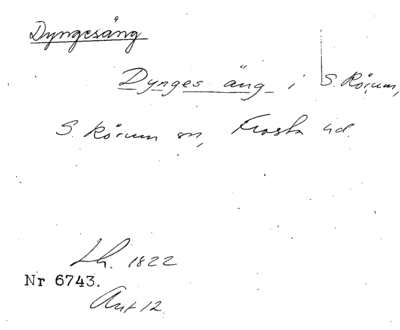 Dyngesäng
Dynges äng i S. Rörum,
S. Rörum sn, Frosta hd.
Lh. 1822
Nr 6743.
Ant 12.